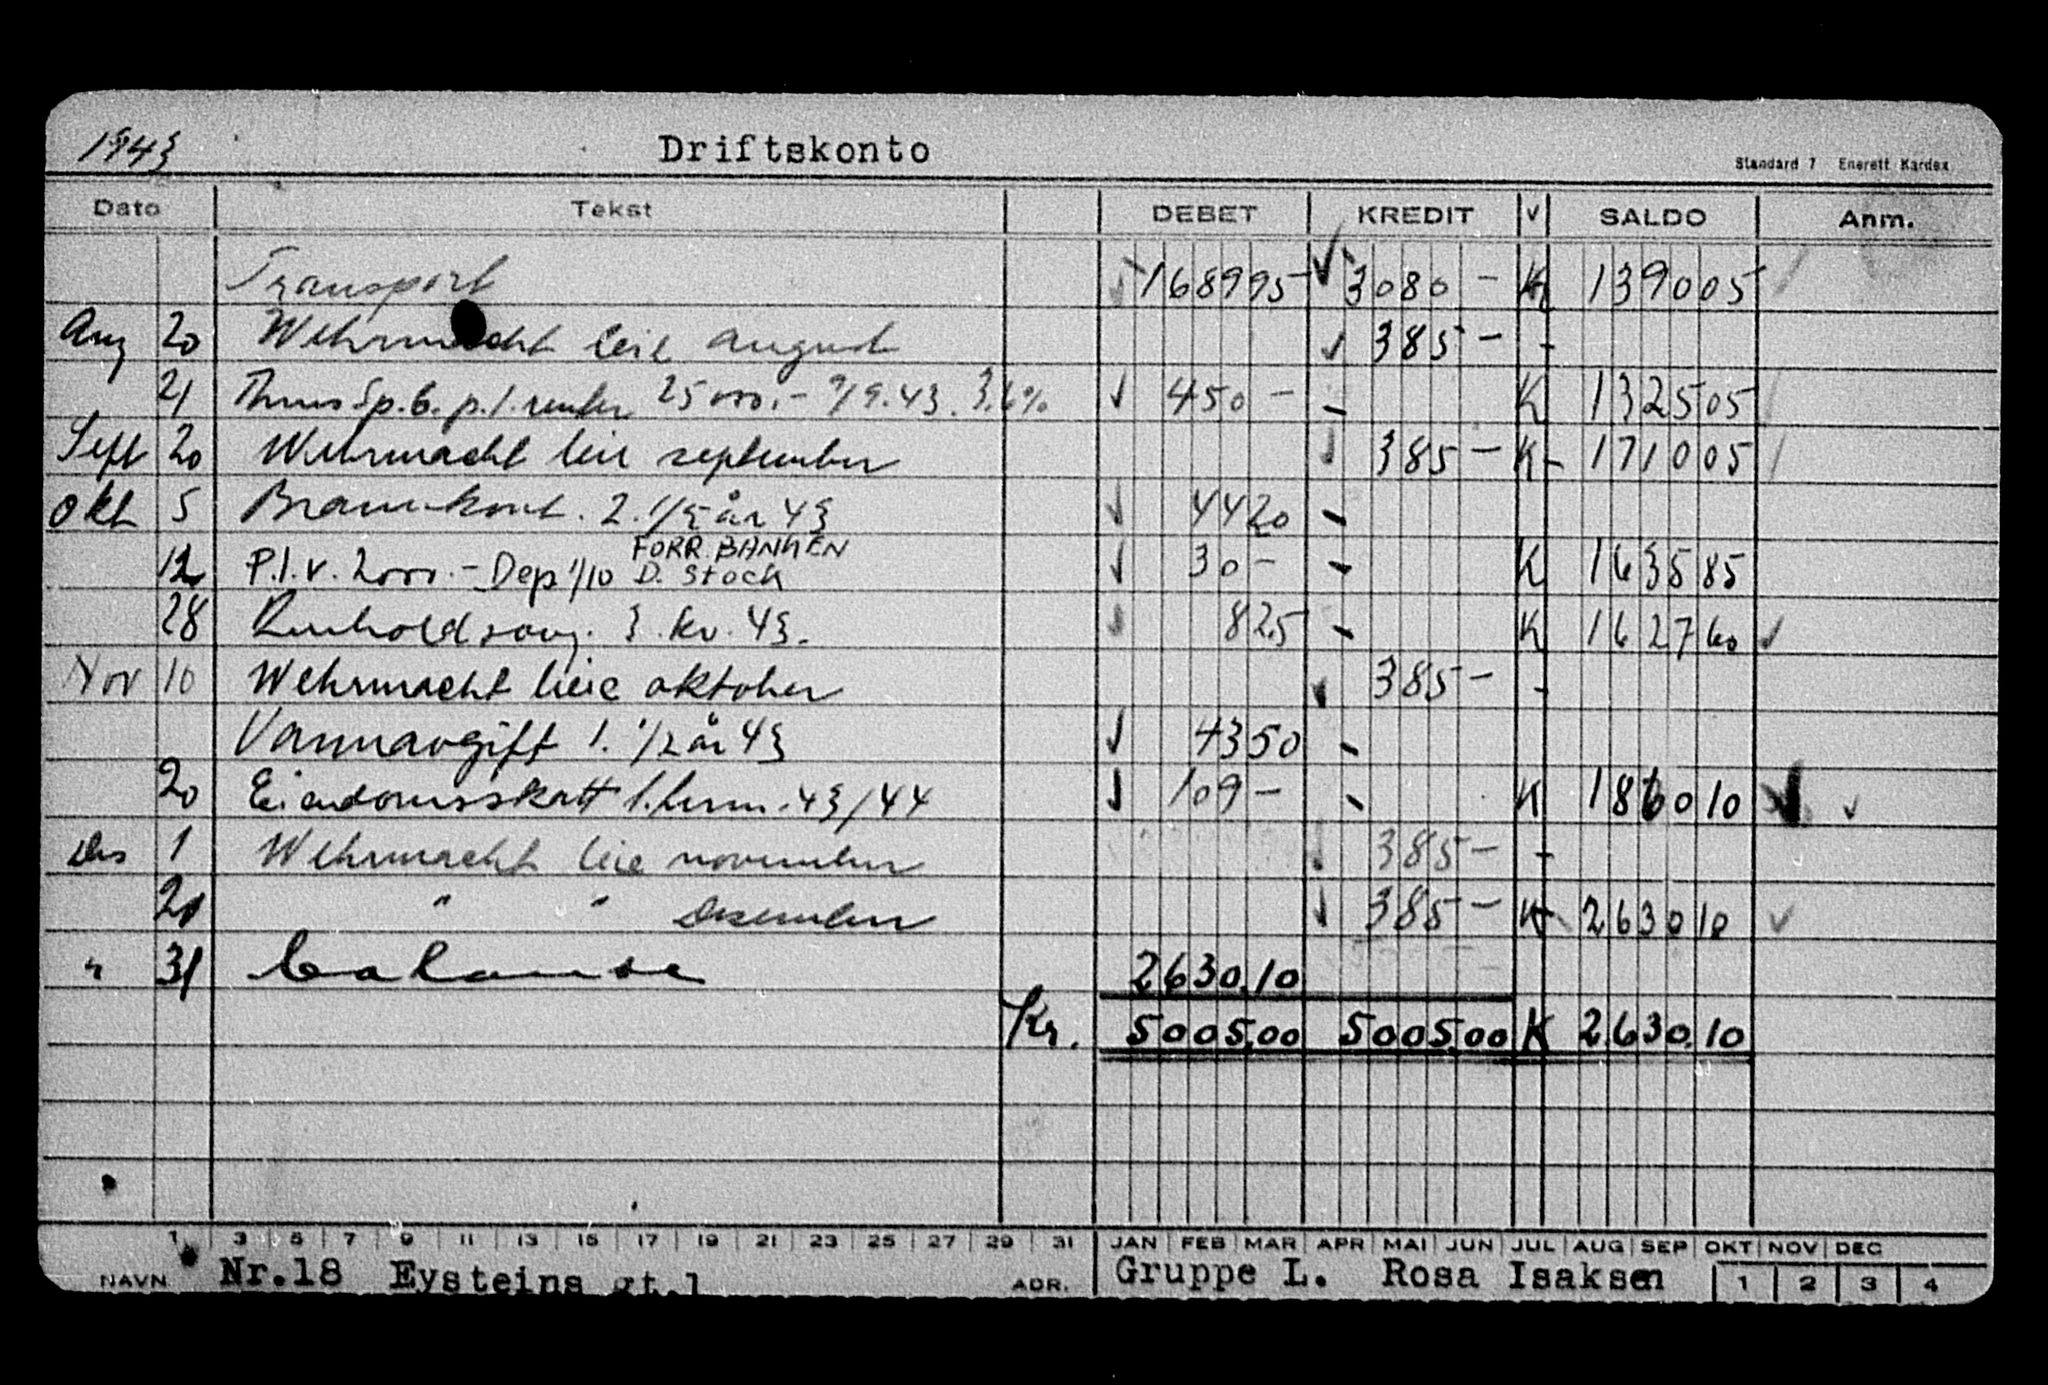 1943 Driftskonto Standard 7 Enerett Kardex
Dato Tekst DEBET KREDIT V SALDO Anm.
Transport 1689 95 3080 - K 1390 05
Aug 20 Wehrmacht leie august 385 -
21 Sp.b. p.l. renter 25000.- 9/9.43. 3.6% 450 - K 1325 05
Sept 20 Wehrmacht leie september 385 - K 1710 05
Okt 5 2. 1/2 år 43 44 20
FORR. BANKEN
12 P.l.v. 2000.- Dep 1/10 D. Stock 30 - K 1635 85
28 Renholdsavg. 3. kv. 43. 8 25 K 1627 60
Nov 10 Wehrmacht leie oktober 385 -
Vannavgift 1. 1/2 år 43 43 50
20 Eiendomsskatt 1. term. 43/44 109 - K 1860 10
Des 1 Wehrmacht leie november 385 -
21 " " desember 385 - K 2630 10
" 31 balanse 2630.10
Kr. 5005.00 5005.00 K 2630.10
1 3 5 7 9 11 13 15 17 19 21 23 25 27 29 31 JAN FEB MAR APR MAI JUN JUL AUG SEP OKT NOV DEC
NAVN Nr.18 Eysteins gt.1 ADR. Gruppe L. Rosa Isaksen 1 2 3 4